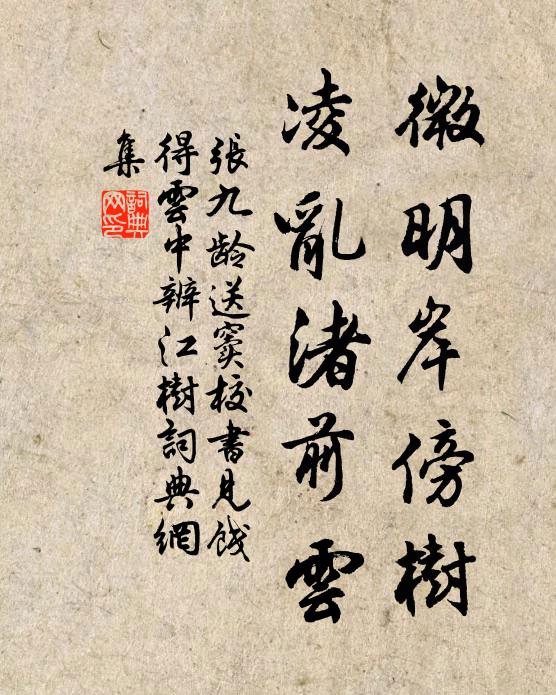 微明岸傍樹
凌亂渚前雲
張九龄送窦校書見餞
得雲中辨江樹詞典網
集
詞典
网印